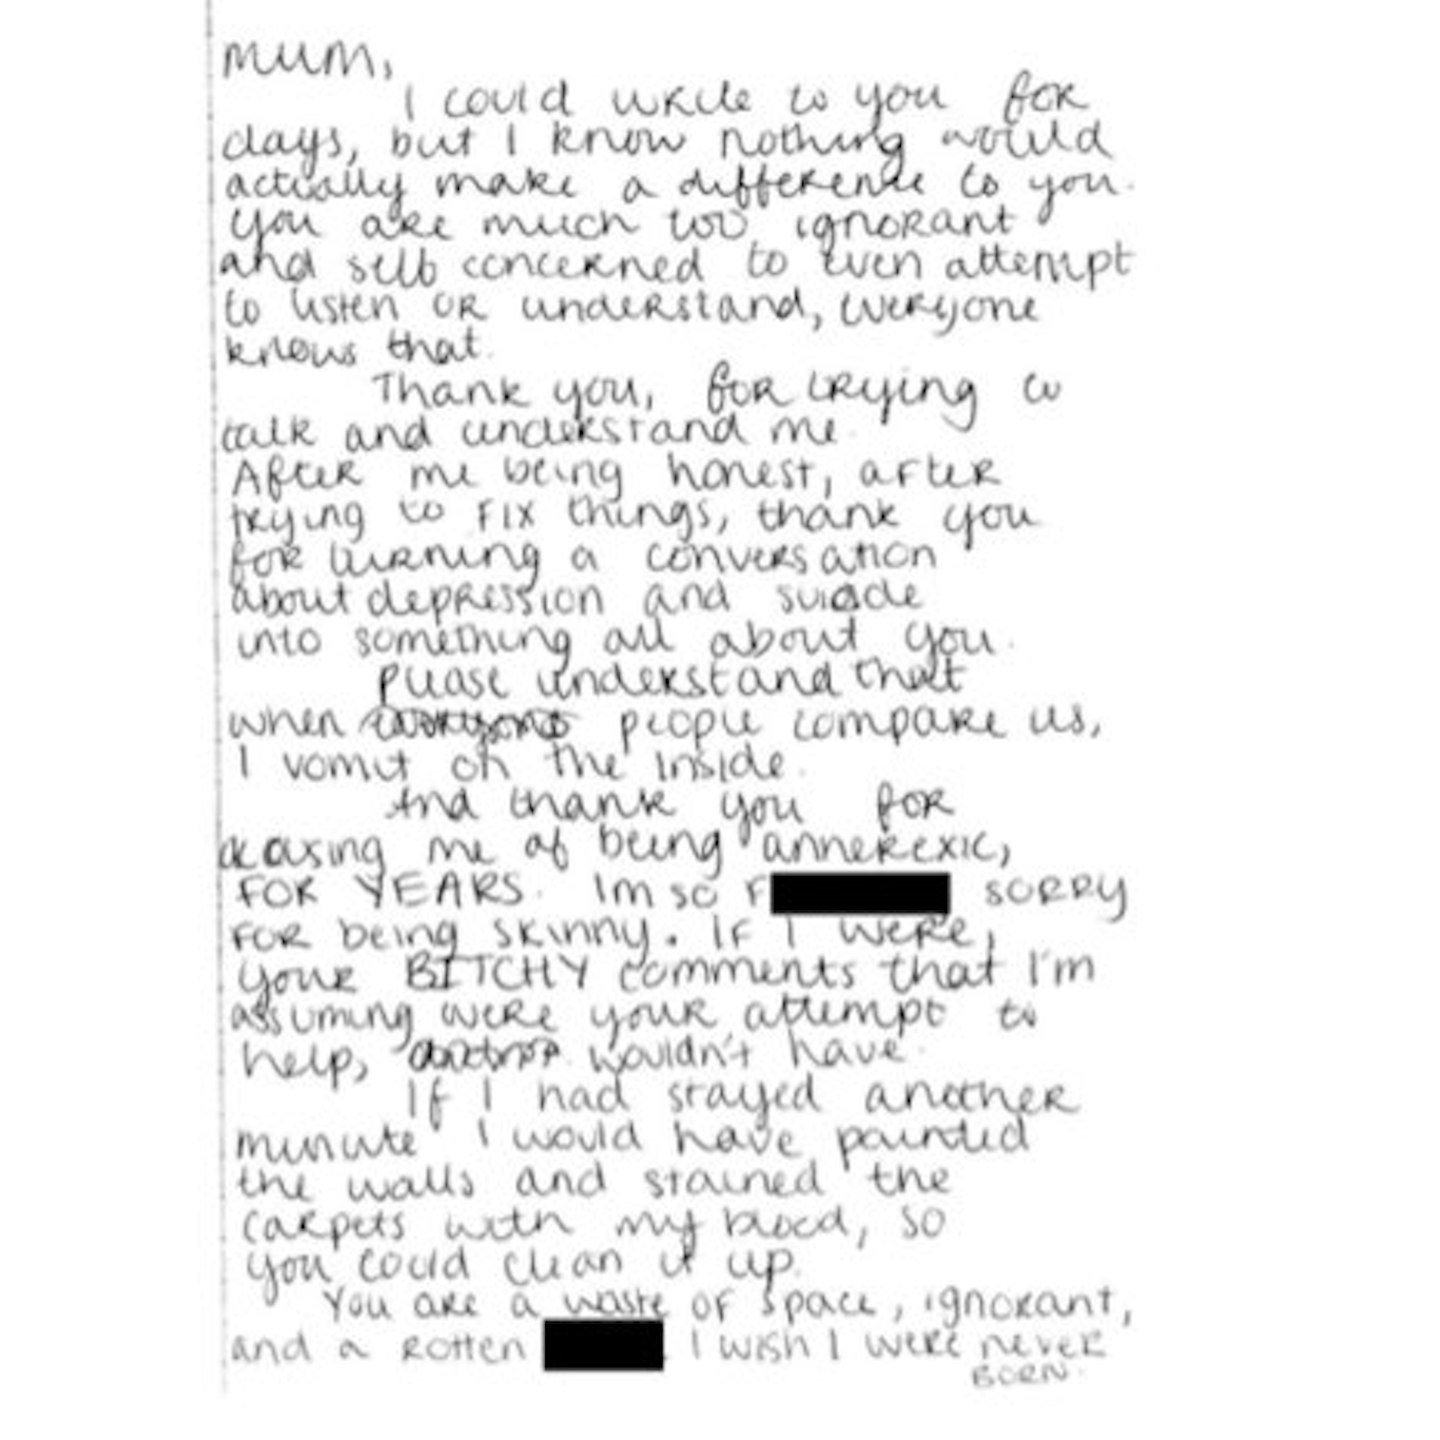 Mum,
I could write to you for
days, but I know nothing would
actually make a difference to you.
You are much too ignorant
and self concerned to even attempt
to listen or understand, everyone
knows that.
Thank you, for trying to
talk and understand me.
After me being honest, after
trying to FIX things, thank you
for turning a conversation
about depression and suicide
into something all about you.
Please understand that
when people compare us,
I vomit on the inside.
And thank you for
acusing me of being annerexic,
FOR YEARS. Im so F sorry
for being skinny. If I were,
your BITCHY comments that I'm
assuming were your attempt to
help, wouldn't have.
If I had stayed another
minute I would have painted
the walls and stained the
carpets with my blood, so
you could clean it up.
You are a waste of space, ignorant,
and a rotten . I wish I were never
BORN.